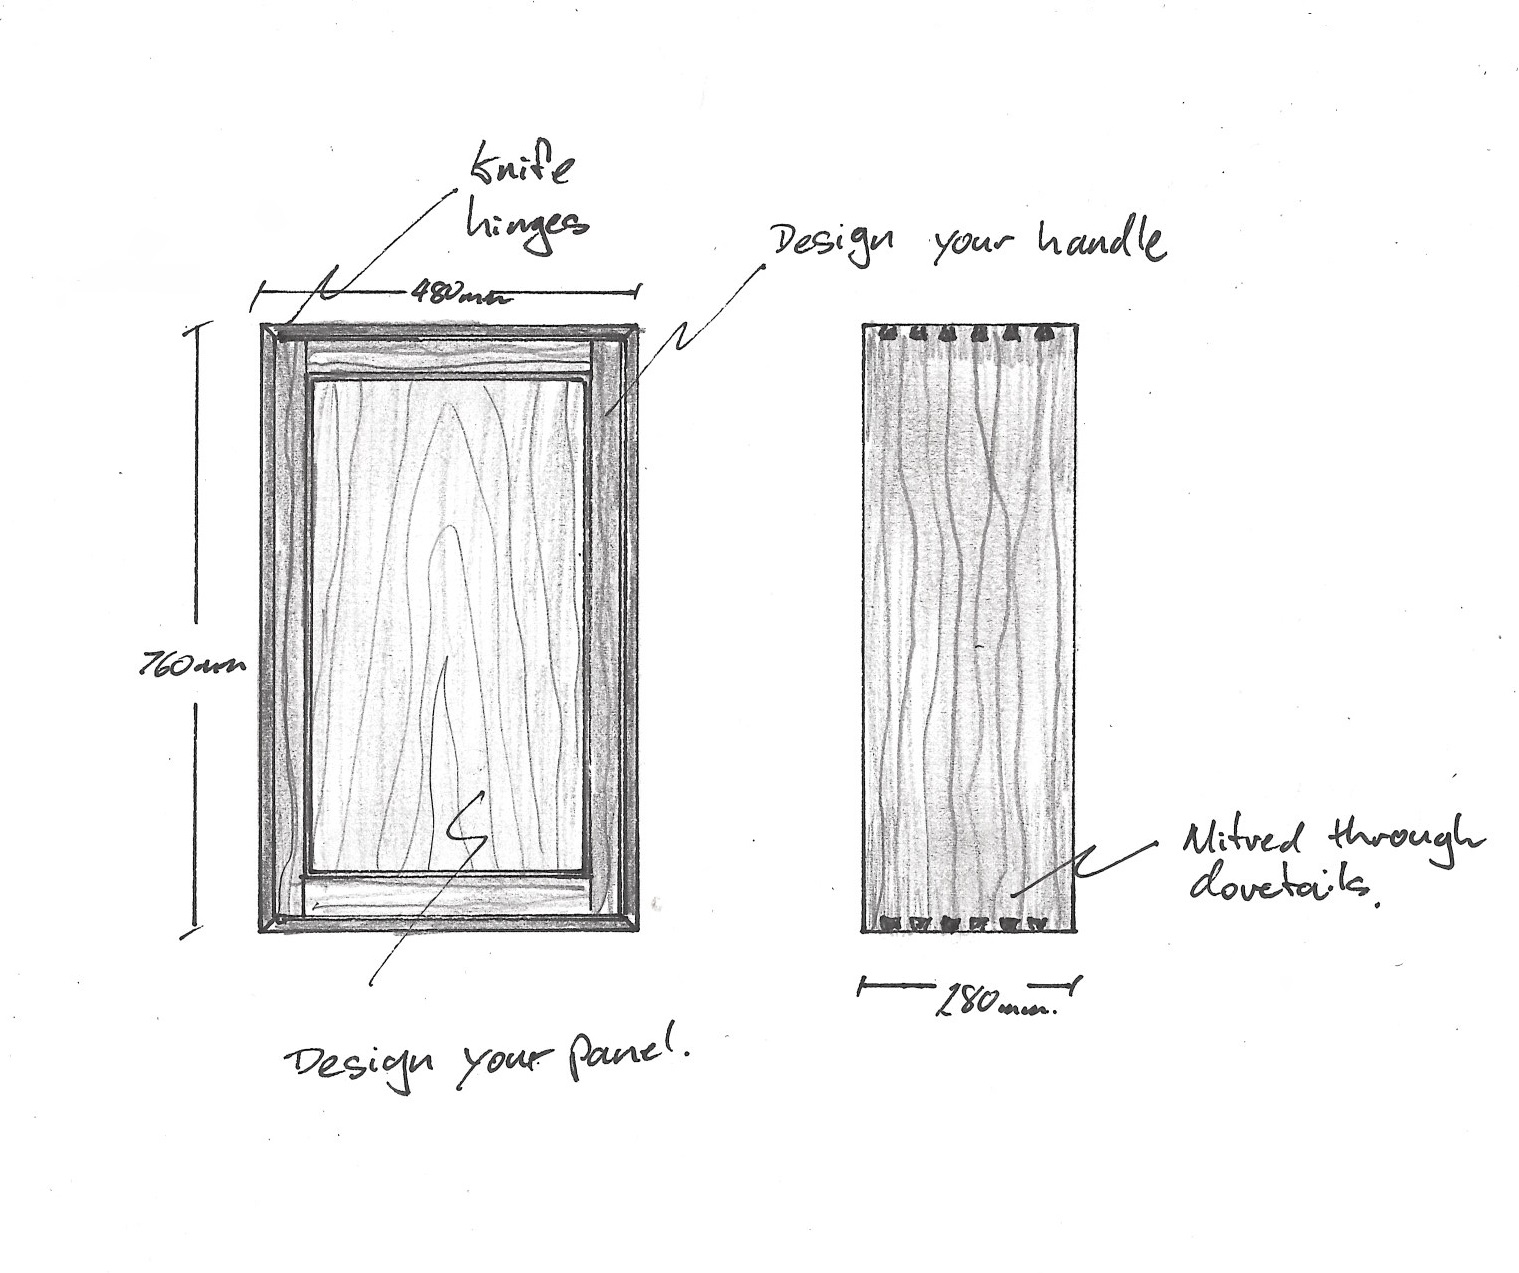 Knife
hinges
Design your handle
480mm
760mm
Mitred through
dovetails.
280mm.
Design your panel.